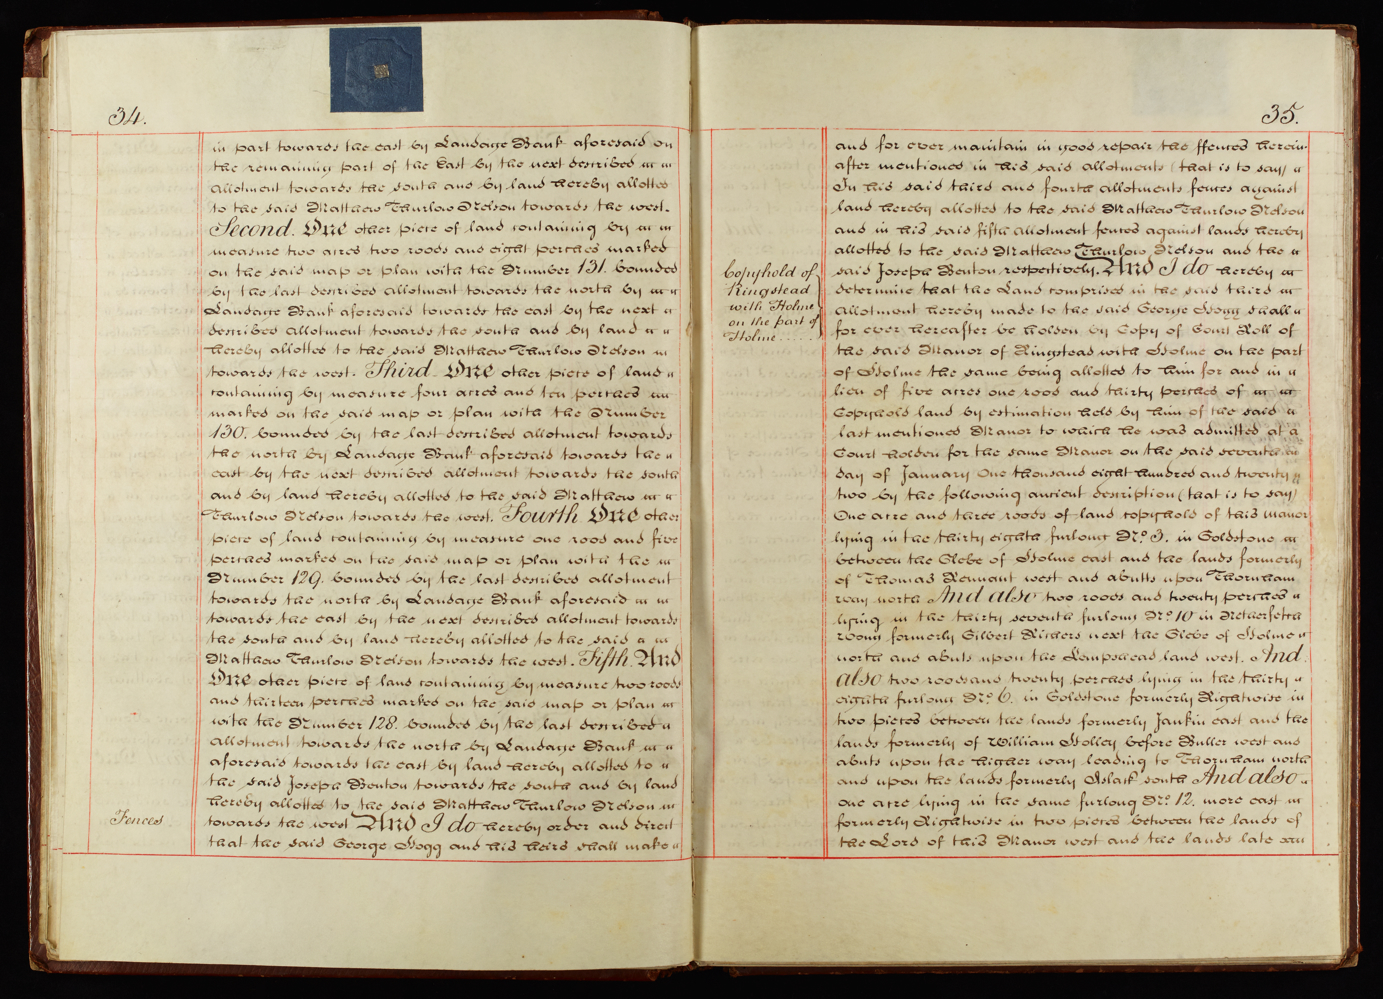 34.
in part towards the east by Landage Bank aforesaid on
the remaining part of the East by the next described
allotment towards the south and by land hereby allotted
to the said Matthew Thurlow Nelson towards the west.
Second. One other piece of land containing by
measure two acres two roods and eight perches marked
on the said map or plan with the Number 131. bounded
by the last described allotment towards the north by
Landage Bank aforesaid towards the east by the next
described allotment towards the south and by land
hereby allotted to the said Matthew Thurlow Nelson
towards the west. Third. One other piece of land
containing by measure four acres and ten perches
marked on the said map or plan with the Number
130. bounded by the last described allotment towards
the north by Landage Bank aforesaid towards the
east by the next described allotment towards the south
and by land hereby allotted to the said Matthew
Thurlow Nelson towards the west. Fourth One other
piece of land containing by measure one rood and five
perches marked on the said map or plan with the
Number 129. bounded by the last described allotment
towards the north by Landage Bank aforesaid
towards the east by the next described allotment towards
the south and by land hereby allotted to the said
Matthew Thurlow Nelson towards the west. Fifth. And
One other piece of land containing by measure two roods
and thirteen perches marked on the said map or plan
with the Number 128. bounded by the last described
allotment towards the north by Landage Bank
aforesaid towards the east by land hereby allotted to
the said Joseph Benton towards the south and by land
hereby allotted to the said Matthew Thurlow Nelson
Fences
towards the west And I do hereby order and direct
that the said George Hogg and his heirs shall make
35.
and for ever maintain in good repair the ffences herein-
after mentioned in his said allotments (that is to say)
In his said third and fourth allotments fences against
land hereby allotted to the said Matthew Thurlow Nelson
and in his said fifth allotment fences against lands hereby
allotted to the said Matthew Thurlow Nelson and the
Copyhold of
Ringstead
with Holme
on the part of
Holme
said Joseph Benton respectively. And I do hereby
determine that the Land comprised in the said third
allotment hereby made to the said George Hogg shall
for ever hereafter be holden by Copy of Court Roll of
the said Manor of Ringstead with Holme on the part
of Holme the same being allotted to him for and in
lieu of five acres one rood and thirty perches of
Copyhold land by estimation held by him of the said
last mentioned Manor to which he was admitted at a
Court holden for the same Manor on the said seventh
day of January One thousand eight hundred and twenty
two by the following ancient description (that is to say)
One acre and three roods of land copyhold of this manor
lying in the thirty eighth furlong No. 3. in Goldstone
between the Glebe of Holme east and the lands formerly
of Thomas Rennant west and abutts upon Thornham
way north And also two roods and twenty perches
lying in the thirty seventh furlong No. 10 in Netherfetch
formerly Gilbert Richers next the Glebe of Holme
north and abuts upon the Lempshead land west. And
also two roods and twenty perches lying in the thirty
eighth furlong No. 6. in Goldstone formerly Rightwise in
two pieces between the lands formerly Jankin east and the
lands formerly of William Holley before Buller west and
abuts upon the higher way leading to Thornham north
and upon the lands formerly Aslack south And also
one acre lying in the same furlong No. 12. more east
formerly Rightwise in two pieces between the lands of
the Lord of this Manor west and the lands late